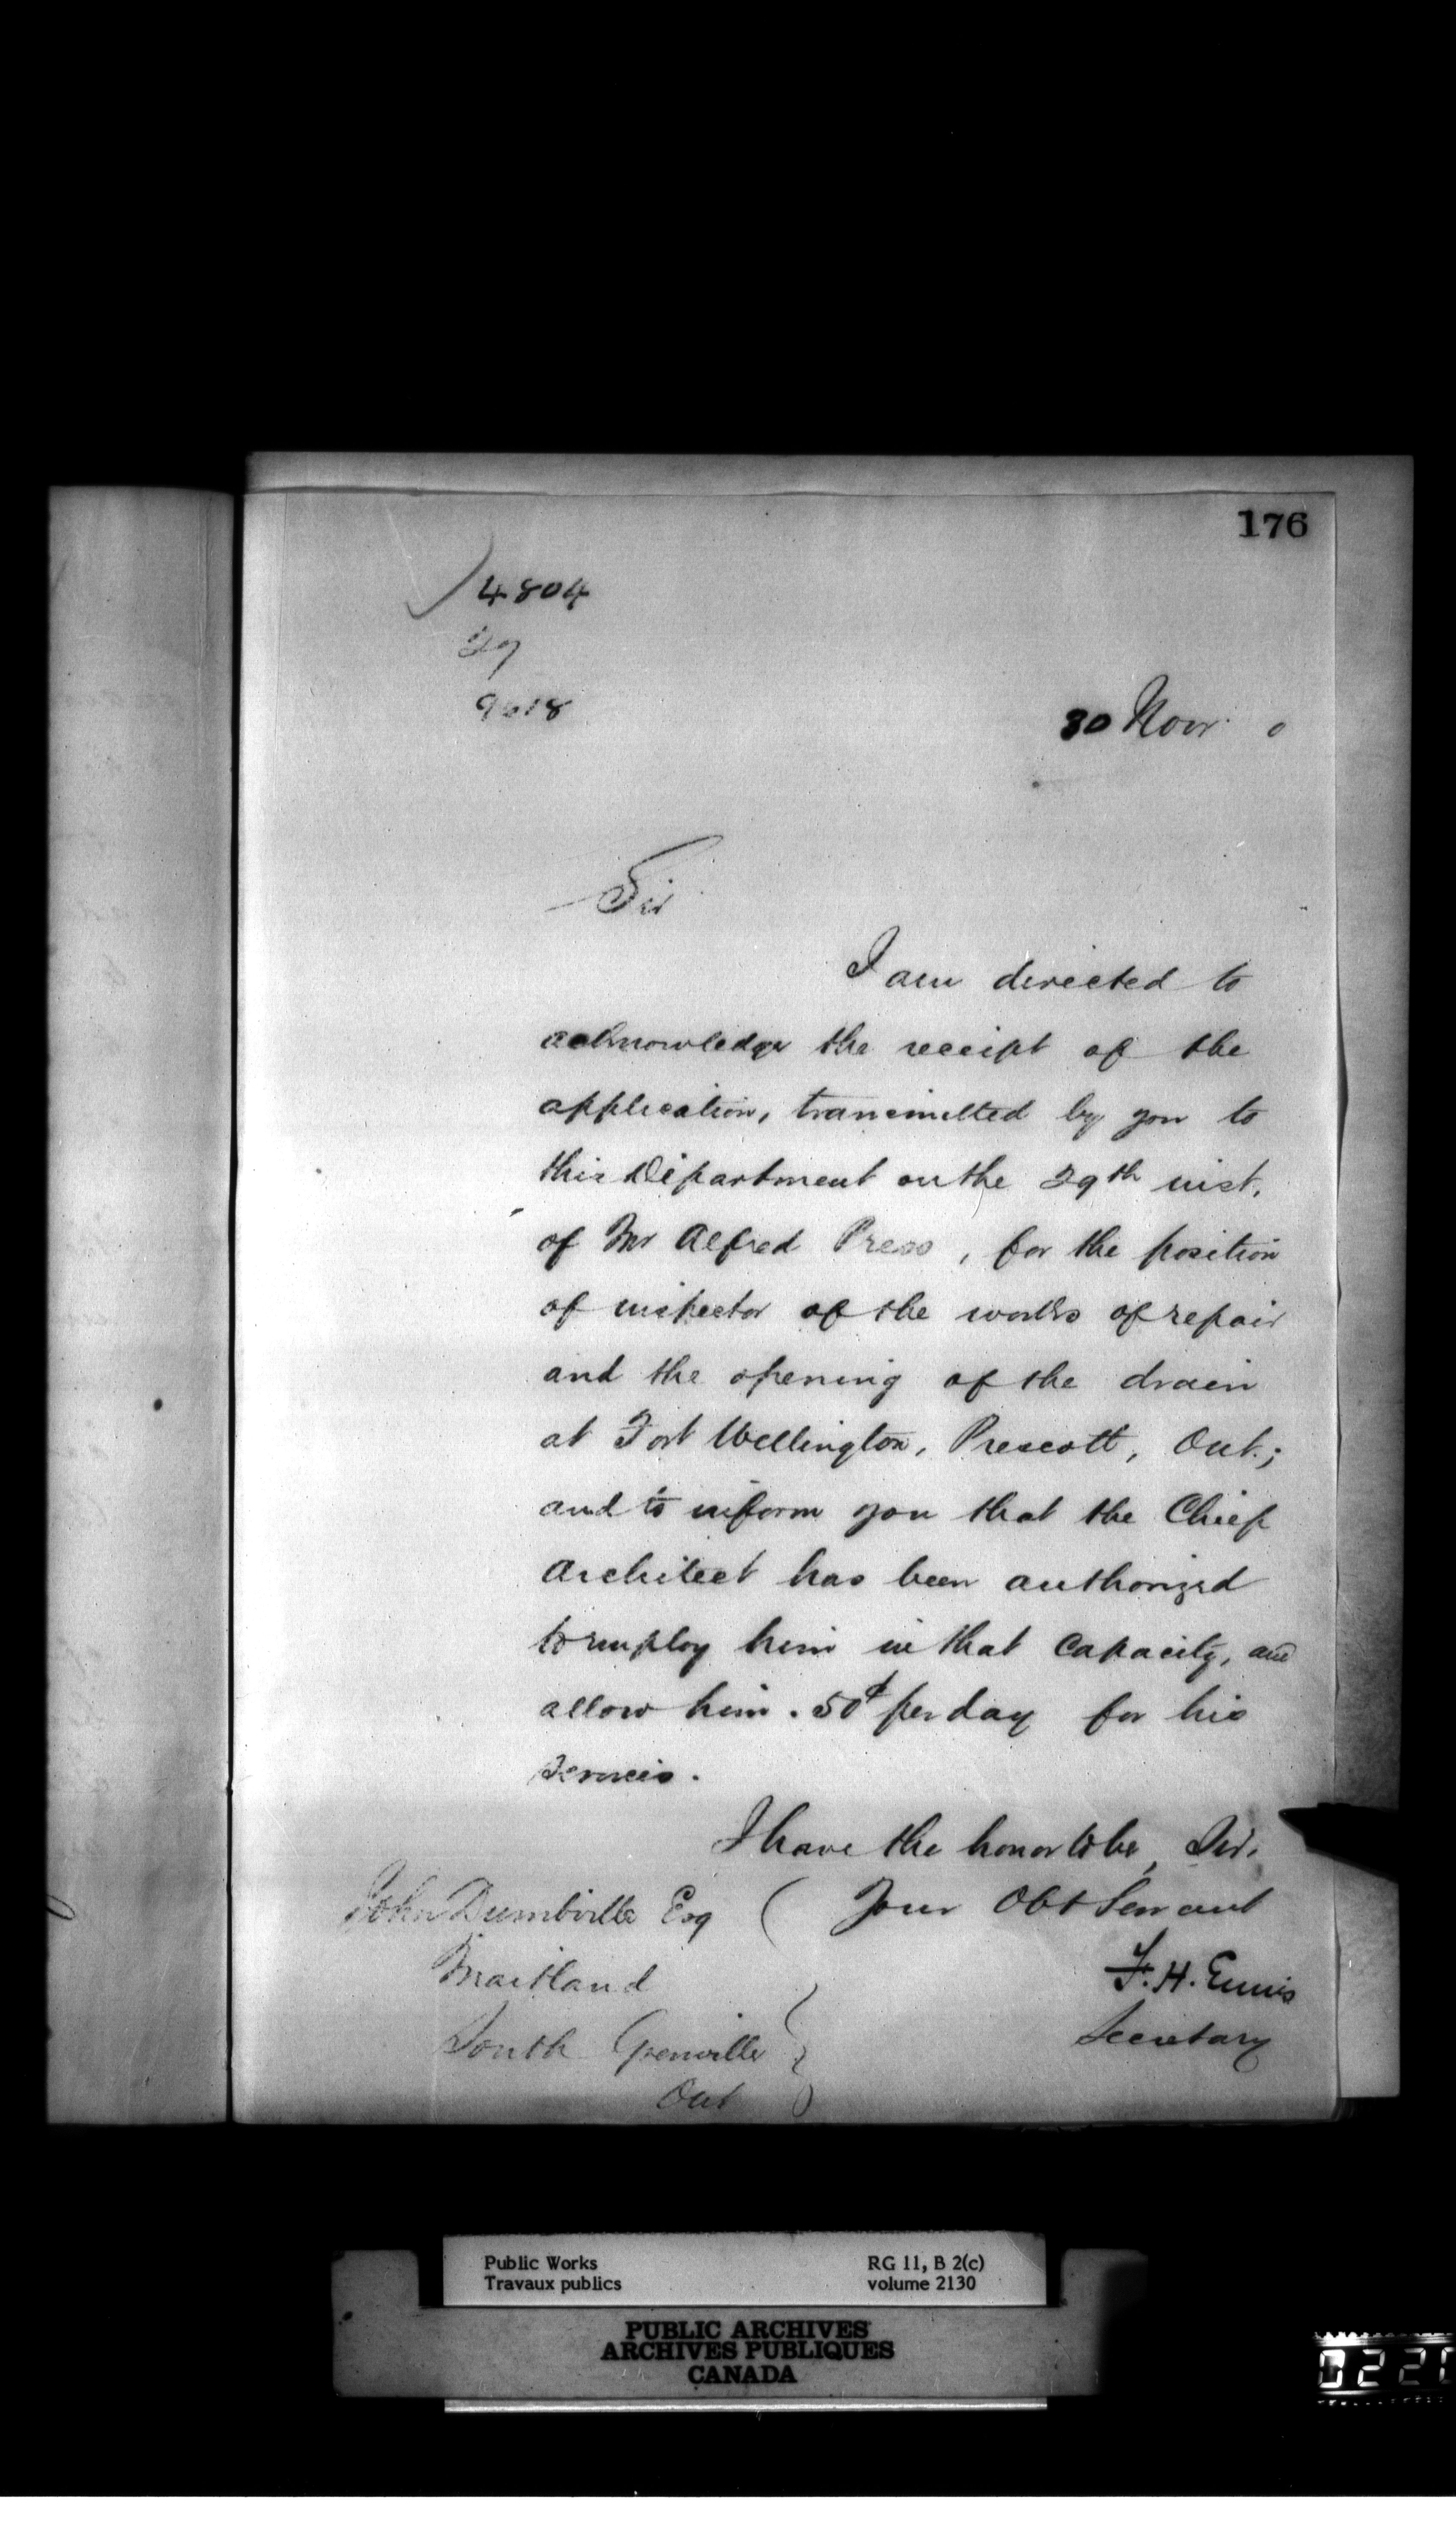 176
4804
29
9618
30 Novr. 0
Sir
I am directed to
acknowledge the receipt of the
application, transmitted by you to
this Department on the 29th inst,
of Mr Alfred Press, for the position
of inspector of the works of repair
and the opening of the drain
at Fort Wellington, Prescott, Ont.;
and to inform you that the Chief
Architect has been authorized
to employ him in that capacity, and
allow him .50¢ per day for his
services.
I have the honor to be, Sir,
Your Obt Servant
F. H. Ennis
Secretary
John Dumbrille Esq
Maitland
South Grenville
Ont
Public Works
Travaux publics
RG 11, B 2(c)
volume 2130
PUBLIC ARCHIVES
ARCHIVES PUBLIQUES
CANADA